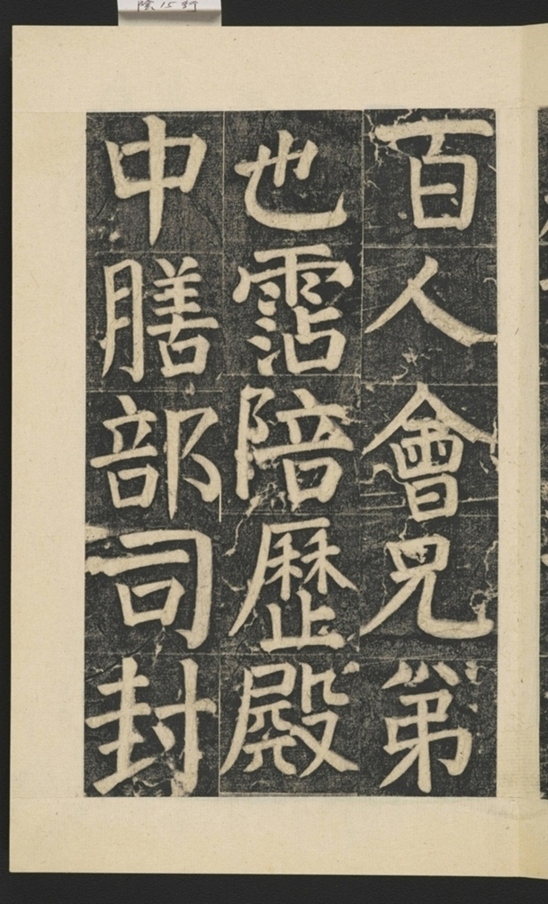 百人會兄弟
也霑陪歷殿
中膳部司封